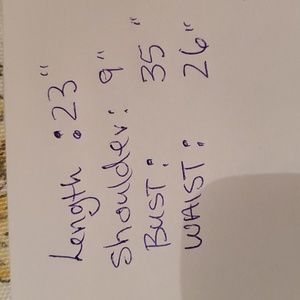 Length : 23"
Shoulder: 9"
BUST: 35"
WAIST: 26"